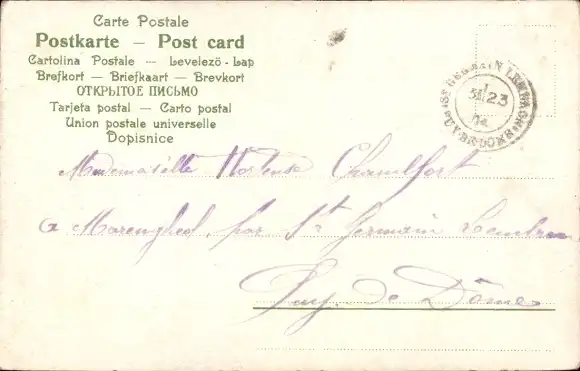 Carte Postale
Postkarte — Post card
Cartolina Postale — Levelező-Lap
Brefkort — Briefkaart — Brevkort
ОТКРЫТОЕ ПИСЬМО
Tarjeta postal — Carto postal
Union postale universelle
Dopisnice
St GERMAIN LEMBRON
23
PUY-DE-DOME
Mademoiselle Hortense Chamlfort
a Marenghed, par St Germain Lembron
Puy. de Dôme